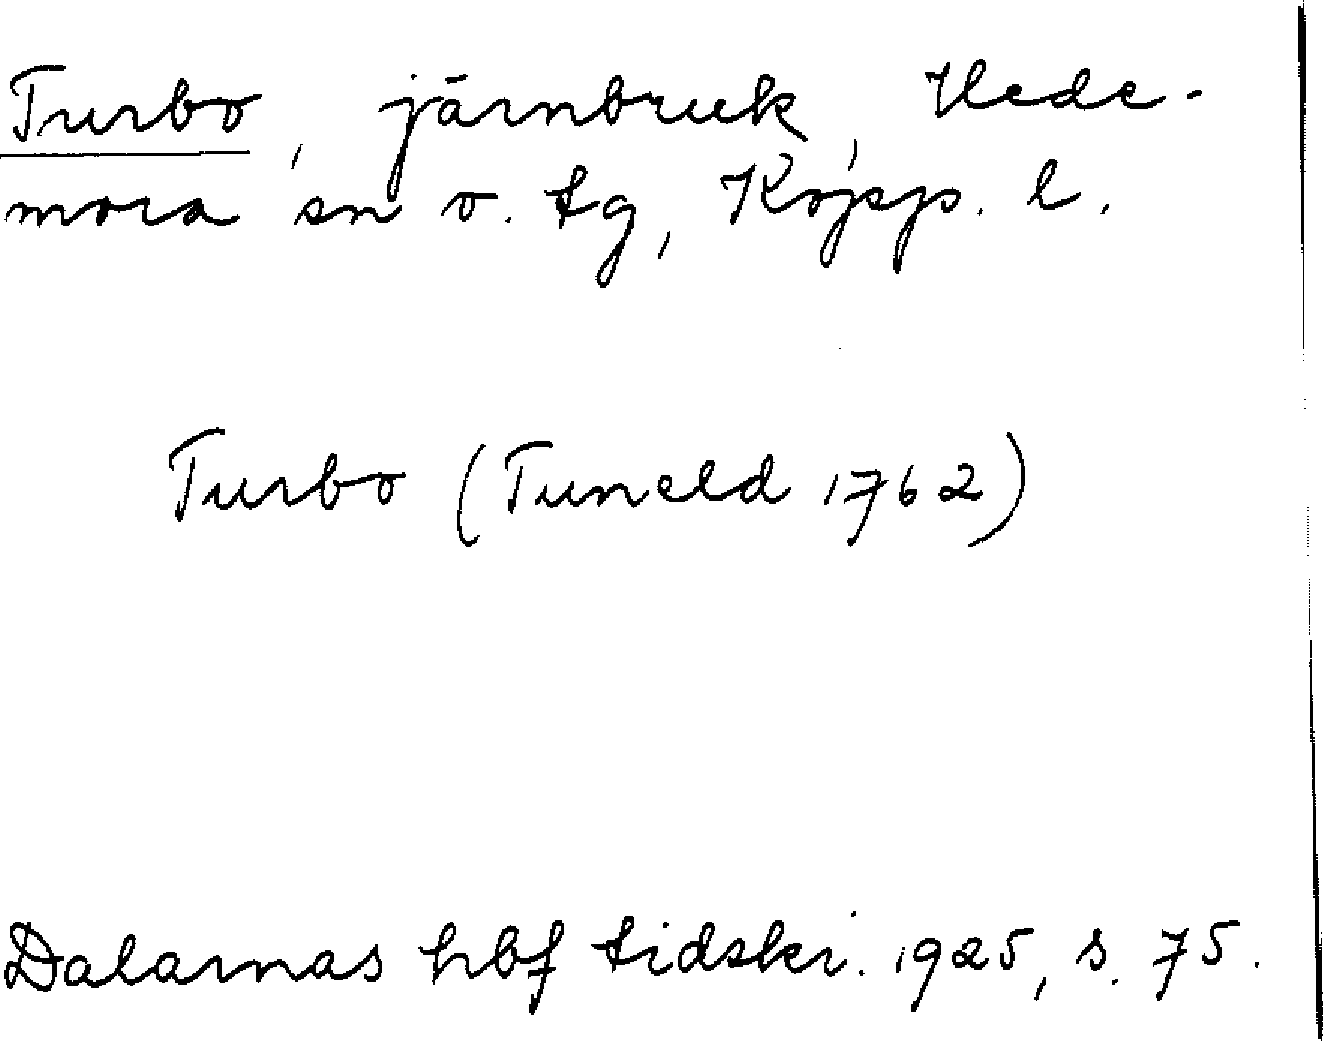 Turbo, järnbruk, Hede-
mora sn o. tg, Kopp. l.
Turbo (Tuneld 1762)
Dalarnas hbf tidskr. 1925, s. 75.